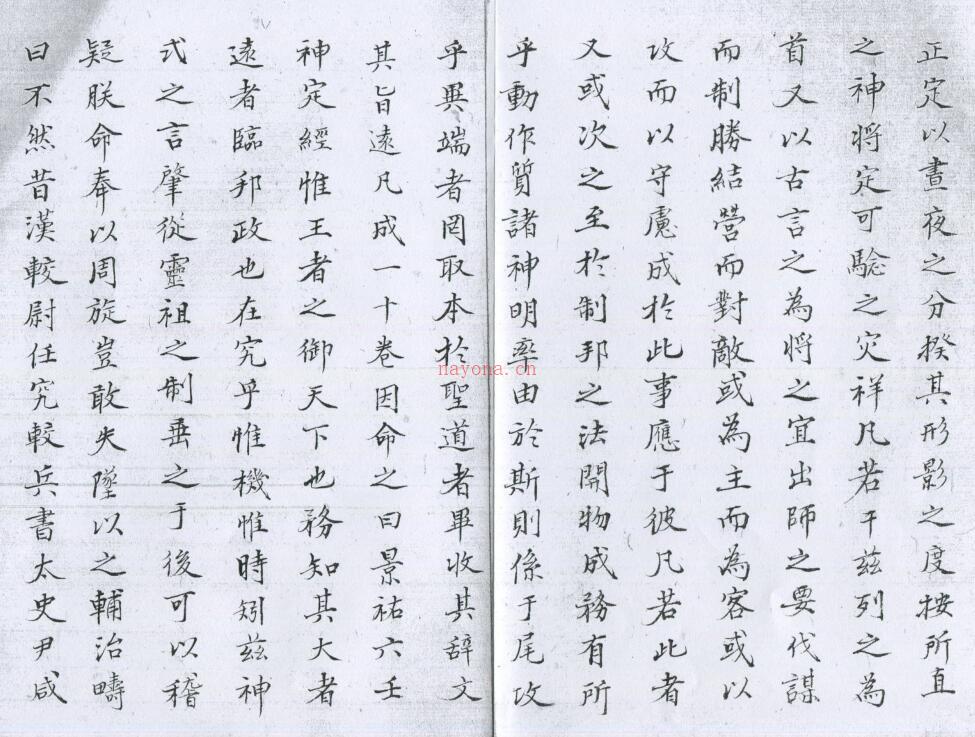 正定以晝夜之分揆其形影之度按所直
之神將定可驗之灾祥凡若干兹列之為
首又以古言之為將之宜出師之要伐謀
而制勝結營而對敵或為主而為客或以
攻而以守慮成扵此事應于彼凡若此者
又或次之至扵制邦之法開物成務有所
乎動作質諸神明率由於斯則係于尾攻
乎異端者罔取本扵聖道者畢收其辞文
其旨遠凡成一十卷因命之曰景祐六壬
神定經惟王者之御天下也務知其大者
遠者臨邦政也在究乎惟機惟時矧兹神
式之言肇從靈祖之制垂之于後可以稽
疑朕命奉以周旋豈敢失墜以之輔治疇
曰不然昔漢較尉任究較兵書太史尹咸
nayona.cn